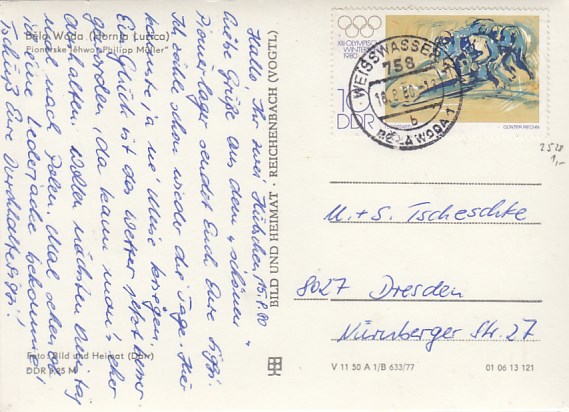 Běła Woda (Hornja Łužica)
Pionerske lěhwo "Philipp Müller"
Hallo, Ihr zwei Hübschen! 15.8.80
Liebe Grüße aus dem "schönen"
Pionierlager sendet Euch Eure
Ich zähle schon wieder die Tage. Hier
kann ja 'ne Muse kriegen.
Ein Glück ist das Wetter jetzt besser
geworden, da kann man's eher
aushalten. Wollen nächsten Freitag
mal nach Polen. Mal sehen ob
ich eine Lederjacke bekomme!
Tschüß Eure
Foto: Bild und Heimat (Darr)
DDR 9,25 M
BILD UND HEIMAT · REICHENBACH (VOGTL)
XIII. OLYMPISCHE
WINTERSPIELE
1980
10
DDR
GÜNTER RECHN
WEISSWASSER 1
758
18.8.80
b
BĚŁA WODA 1
2528
1,-
M.+S. Tscheschke
8027 Dresden
Nürnberger Str. 27
V 11 50 A 1/B 633/77
01 06 13 121